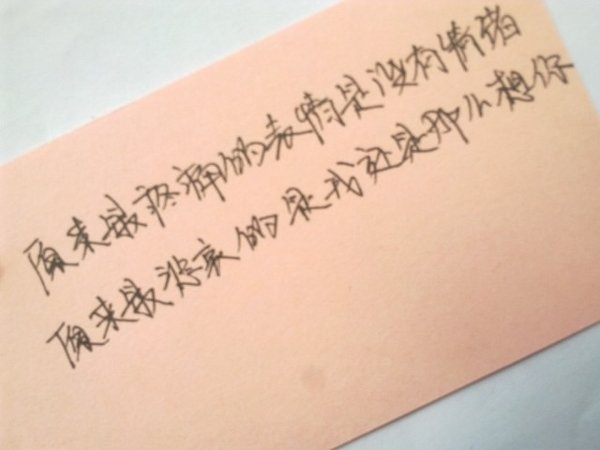 原来最疼痛的表情是没有情绪
原来最悲哀的是我还是那么想你